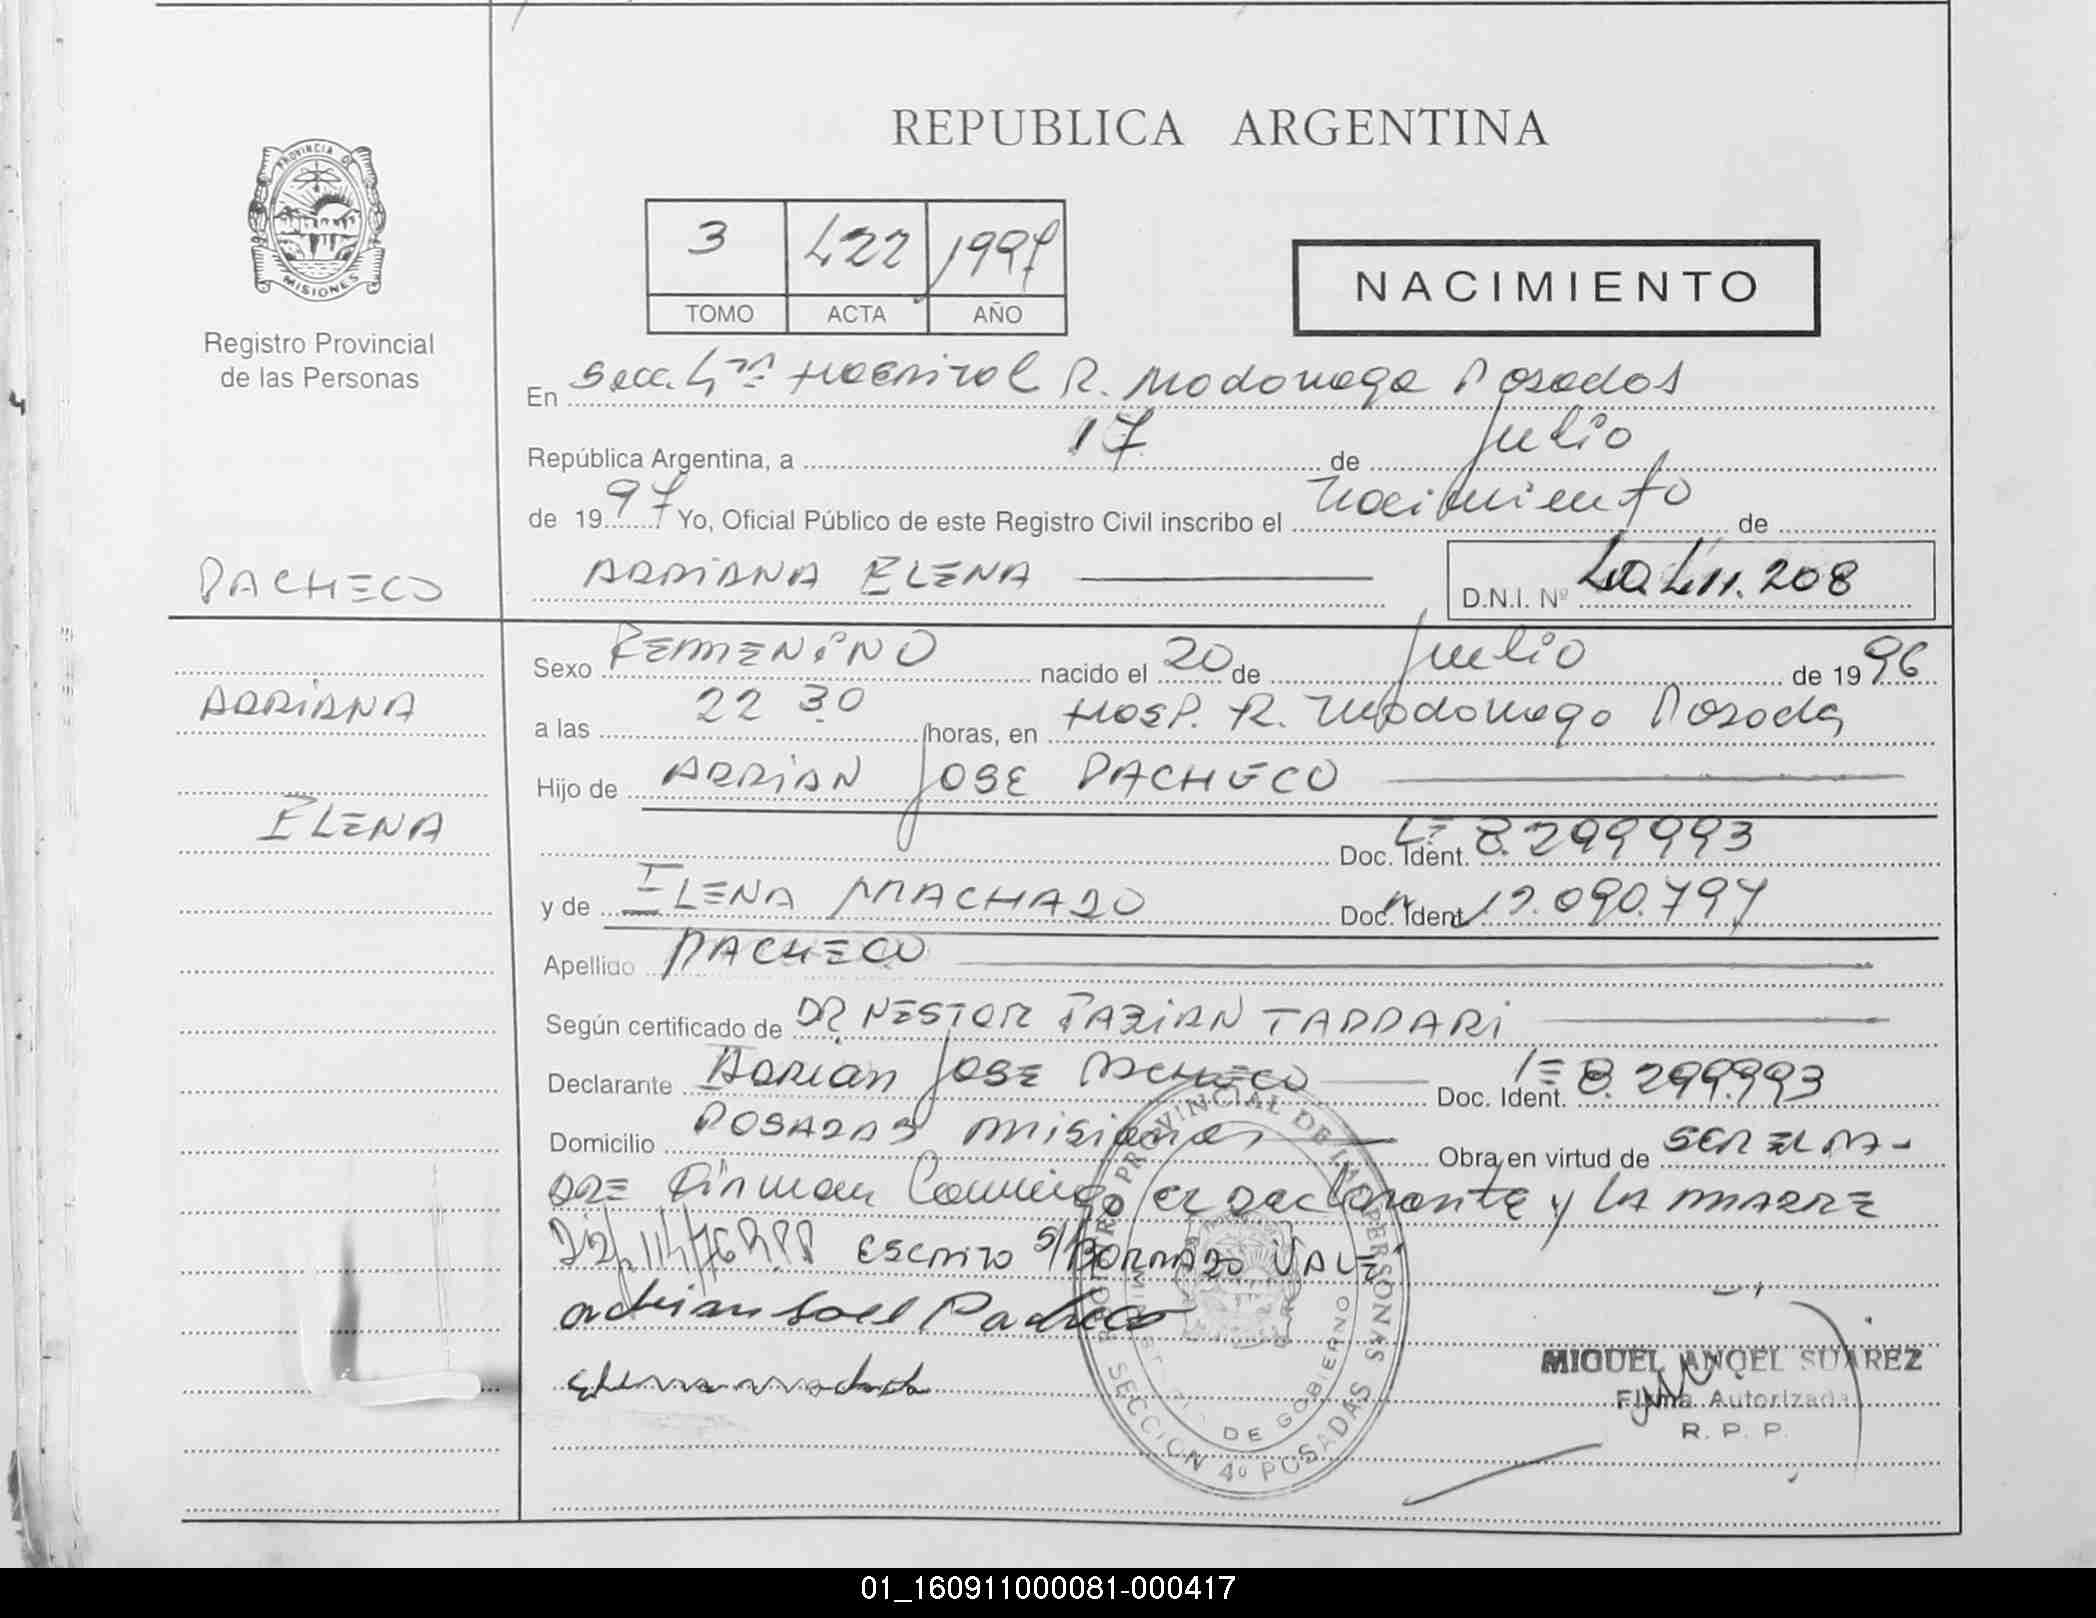 REPUBLICA ARGENTINA
PROVINCIA DE
MISIONES
Registro Provincial
de las Personas
3 422 1997
TOMO ACTA AÑO
NACIMIENTO
En Secc. 4ta Hospital R. Madariaga Posadas
República Argentina, a 17 de Julio
de 1997 Yo, Oficial Público de este Registro Civil inscribo el nacimiento de
PACHECO
ADRIANA ELENA
D.N.I. Nº 40.411.208
Sexo FEMENINO nacido el 20 de Julio de 1996
ADRIANA
a las 22 30 horas, en Hosp. R. Madariaga Posadas
Hijo de ADRIAN JOSE PACHECO
ELENA
Doc. Ident. LE 8.299.993
y de ELENA MACHADO Doc. Ident. 12.090.797
Apellido PACHECO
Según certificado de DR NESTOR FABIAN TADDARI
Declarante Adrian JOSE PACHECO Doc. Ident. LE 8.299.993
Domicilio POSADAS misiones Obra en virtud de SER EL PA-
DRE Firman Conmigo el declarante y LA MADRE
ESCRITO S/BORRADO VALE
adrian José Pacheco
Elena machado
REGISTRO PROVINCIAL DE LAS PERSONAS
MINISTERIO DE GOBIERNO
SECCION 4º POSADAS
MIGUEL ANGEL SUAREZ
Firma Autorizada
R. P. P.
01_160911000081-000417